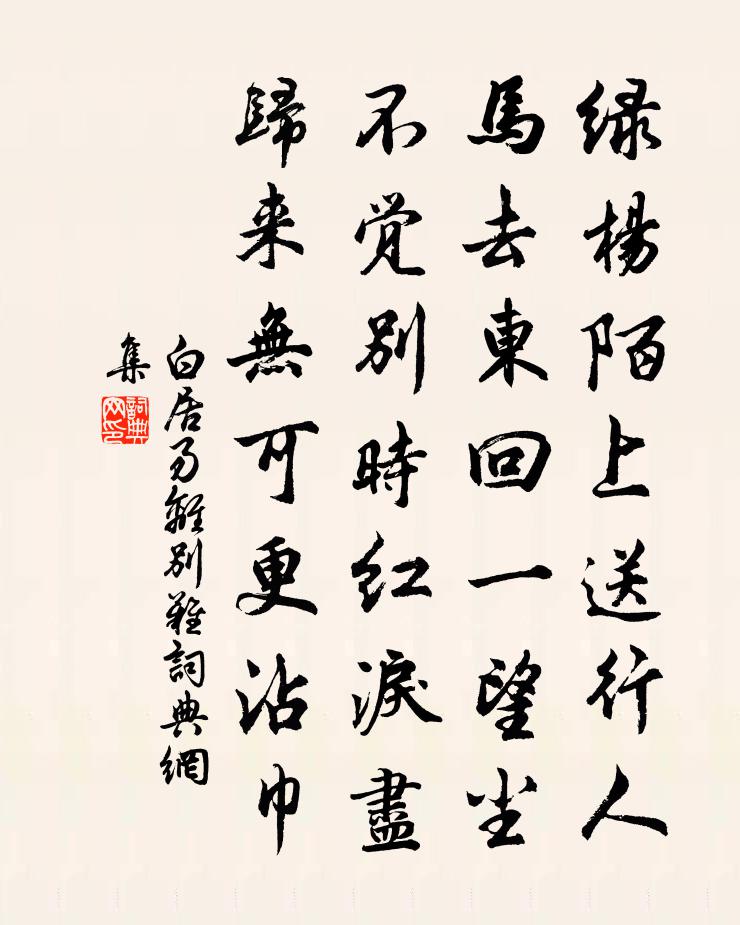 绿楊陌上送行人
馬去東回一望尘
不觉别時红淚盡
歸来無可更沾巾
白居易離别難詞典網
集
詞典网印